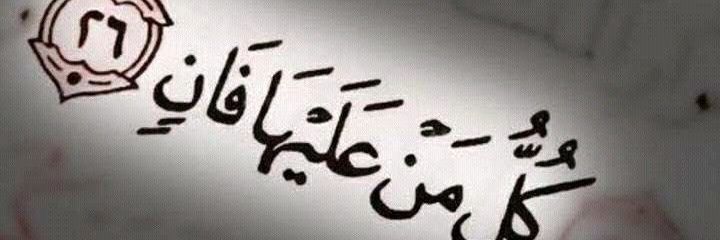 كُلُّ مَنْ عَلَيْهَا فَانٍ ٢٦